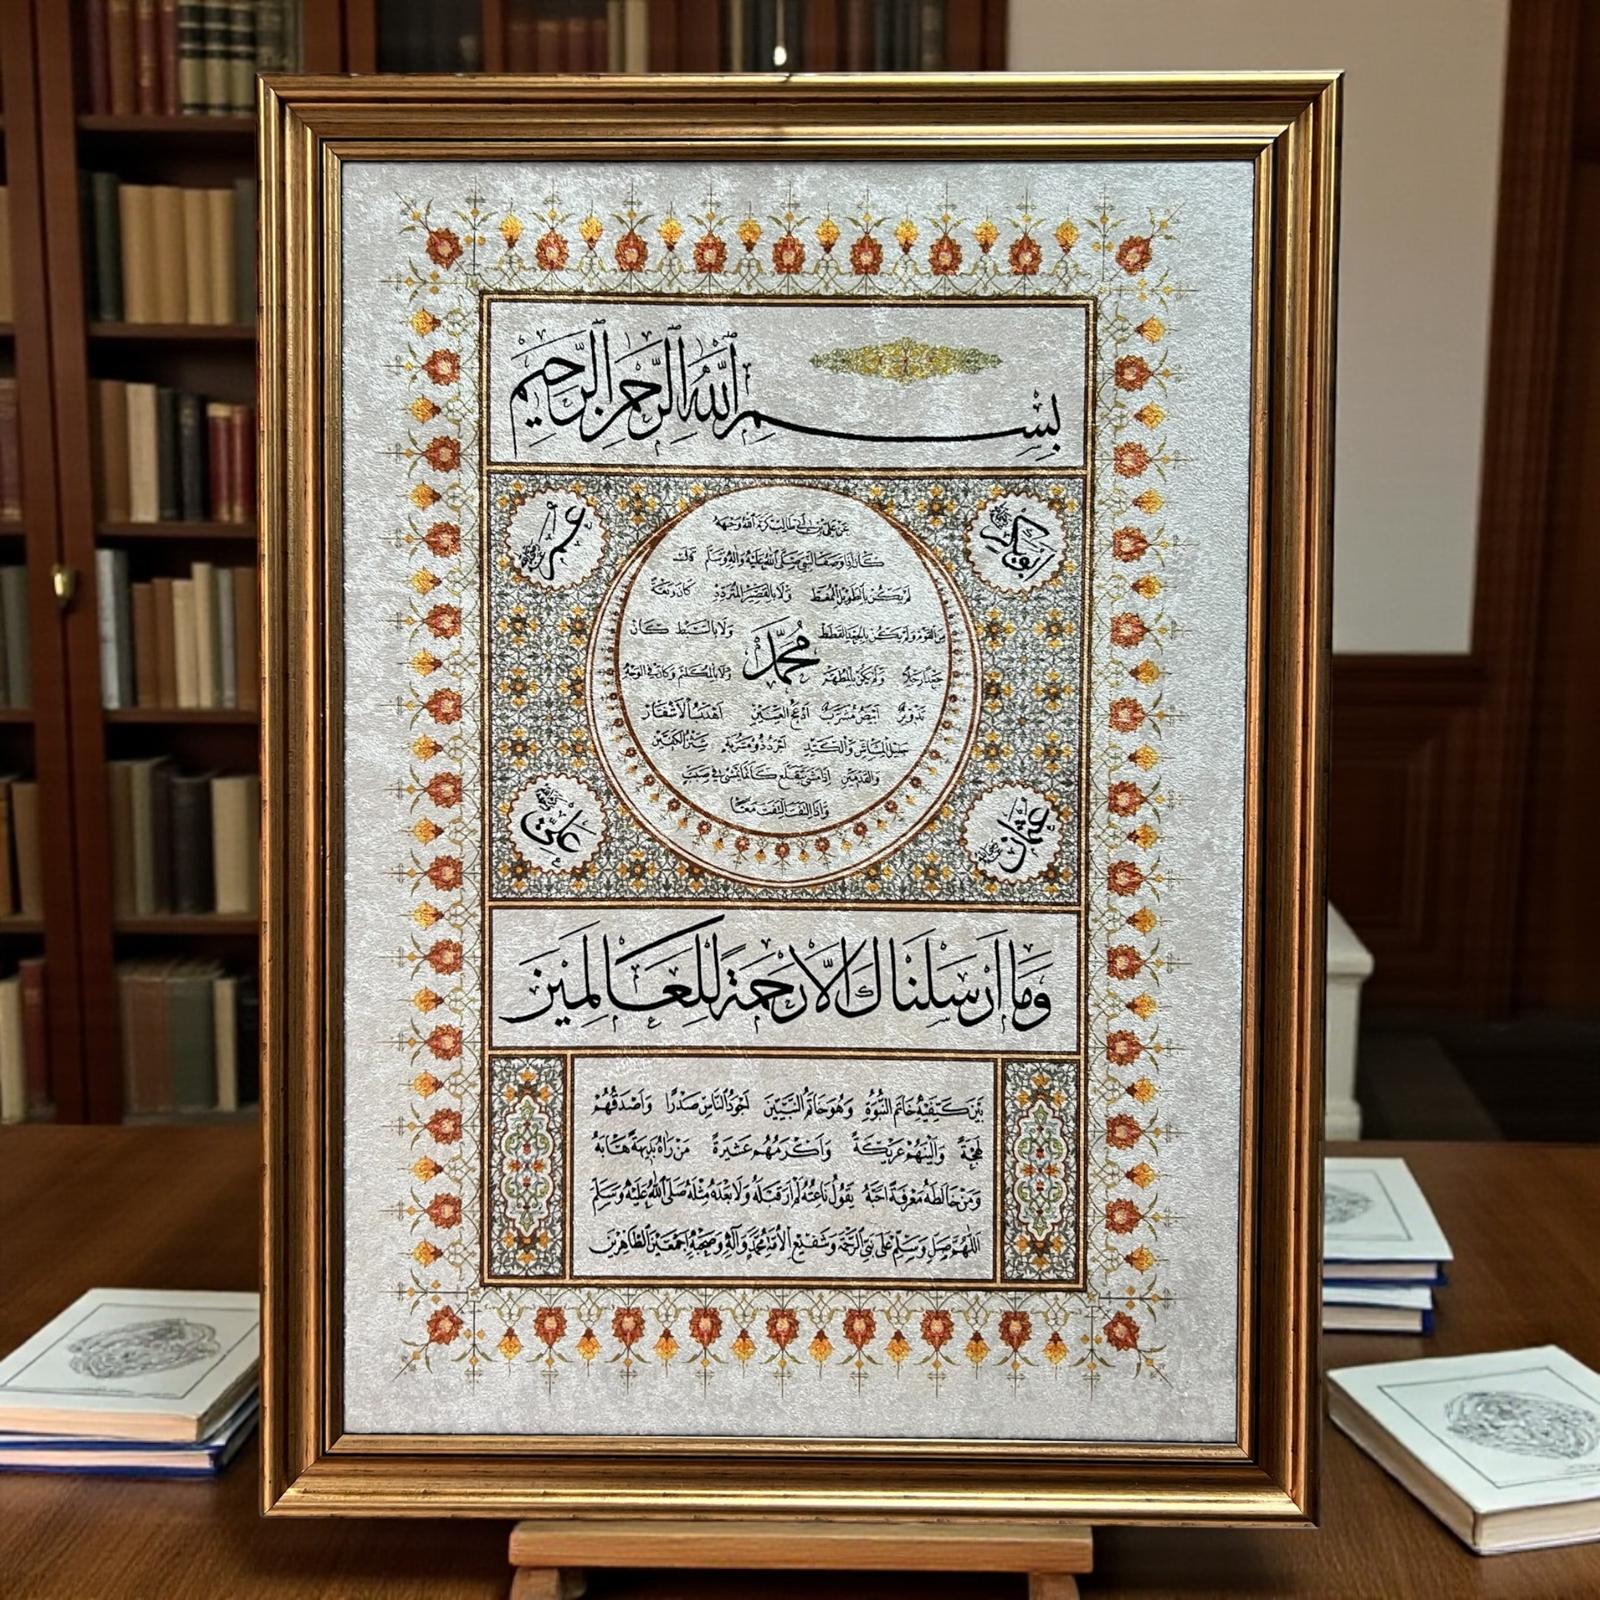 بسم الله الرحمن الرحيم
أبو بكر
عمر
عن علي بن أبي طالب كرم الله وجهه
كان إذا وصف النبي صلى الله عليه وآله وسلم قال
لم يكن بالطويل الممغط ولا بالقصير المتردد كان ربعة
من القوم ولم يكن بالجعد القطط ولا بالسبط كان
محمد
جعدا رجلا ولم يكن بالمطهم ولا بالمكلثم وكان في الوجه
تدوير أبيض مشرب أدعج العينين أهدب الأشفار
جليل المشاش والكتد أجرد ذو مسربة شثن الكفين
والقدمين إذا مشى تقلع كأنما يمشي في صبب
وإذا التفت التفت معا
عثمان
علي
وما أرسلناك إلا رحمة للعالمين
بين كتفيه خاتم النبوة وهو خاتم النبيين أجود الناس صدرا وأصدقهم
لهجة وألينهم عريكة وأكرمهم عشيرة من رآه بديهة هابه
ومن خالطه معرفة أحبه يقول ناعته لم أر قبله ولا بعده مثله صلى الله عليه وسلم
اللهم صل وسلم على نبي الرحمة وشفيع الأمة محمد وآله وصحبه أجمعين الطاهرين